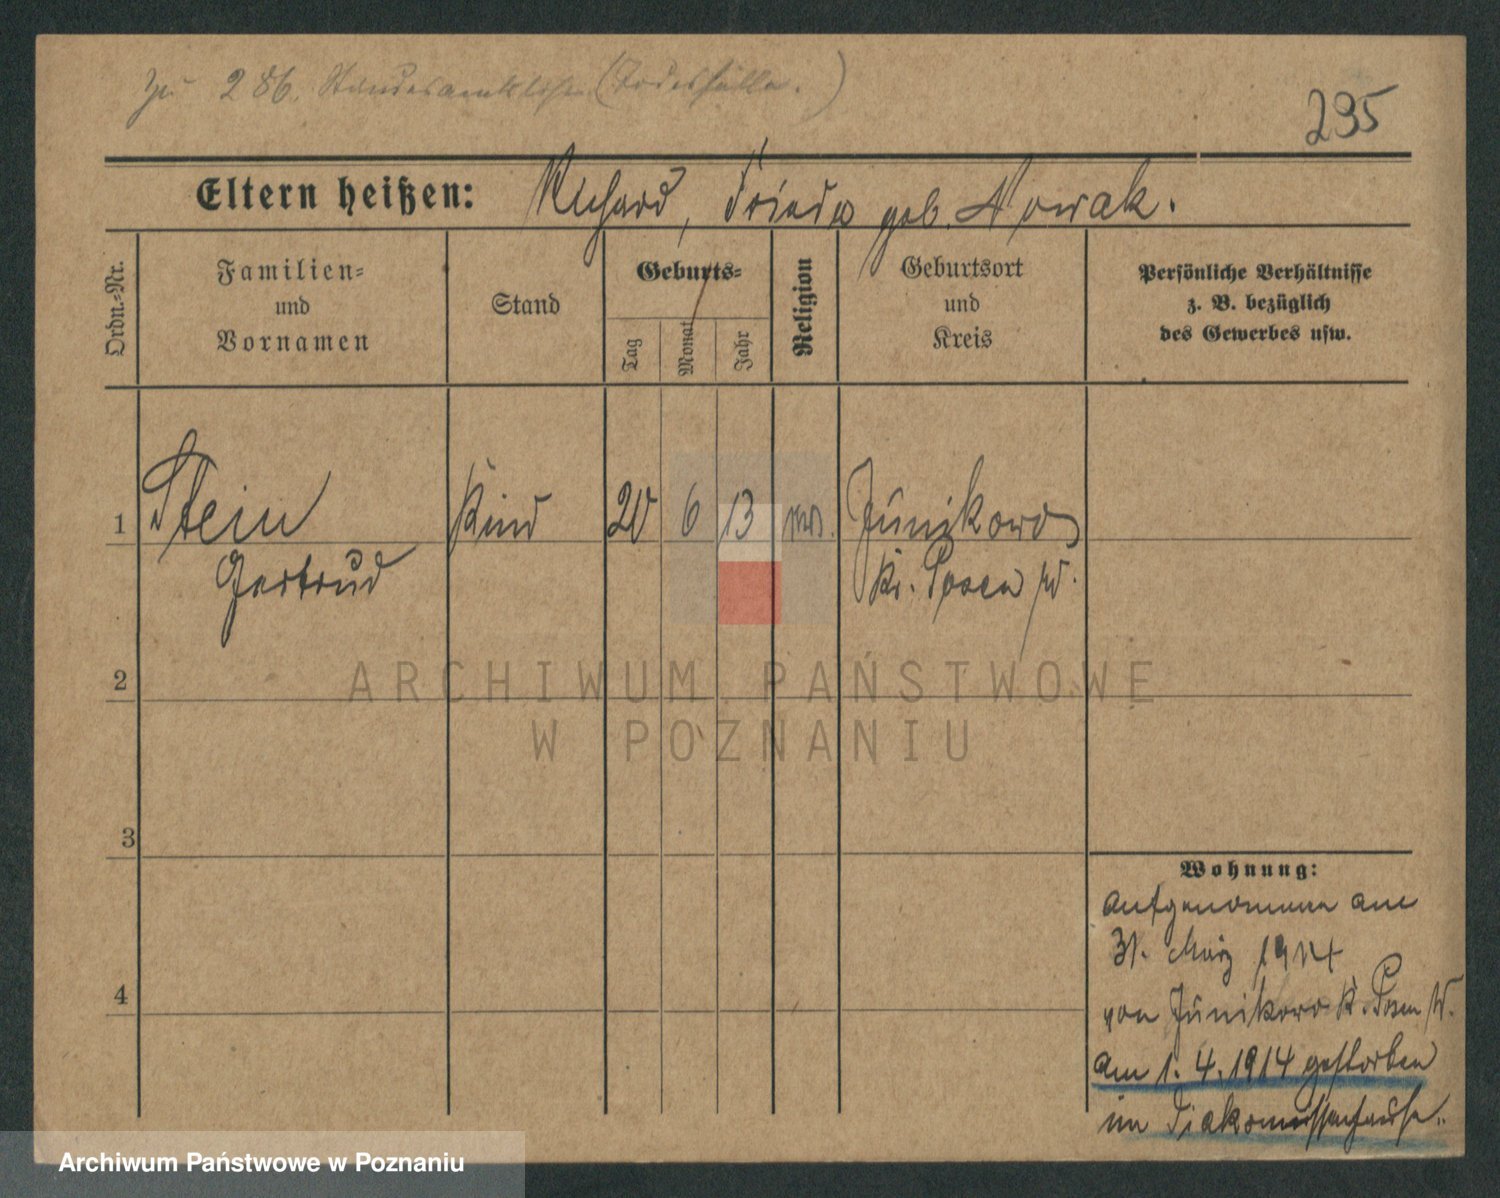 zu 286. Standesamtsliste (Todesfälle.)
295
Eltern heißen: Richard, Frieda geb. Nowak.
Ordn.-Nr.
Familien-
und
Vornamen
Stand
Geburts-
Tag
Monat
Jahr
Religion
Geburtsort
und
Kreis
Persönliche Verhältnisse
z. B. bezüglich
des Gewerbes usw.
1 Stein Kind 20 6 13 Junikowo
Gertrud Kr. Posen W.
2
3
4
Wohnung:
aufgenommen am
31. März 1914
von Junikowo K. Posen W.
am 1. 4. 1914 gestorben
im Diakonissenhause.
ARCHIWUM PAŃSTWOWE
W POZNANIU
Archiwum Państwowe w Poznaniu